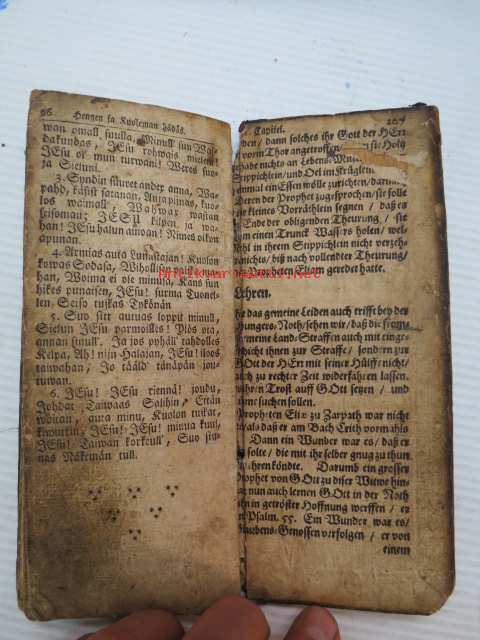 96 Hengen ja Kuoleman Hädäs.
wan omall suulla, Minull sun Wai-
dakundas, JEsu rohwais mielen!
JEsu ol mun turwani! Weres suo-
ja Sieluni.
3. Syndin suuret ander anna, Wa-
pahd, käsist satanan, Auxapinas, kuo-
los waimall,
lrisoman; JESU kilpen, ja wa-
han! JEsu hatun ainoan! Nimes oikon
apunan.
4. Armias auta Lunastajan! Kuolon
kowas Sodasa,
han, Woima ei ole minusa, Kans sun
hikes punaisen, JEsu! surma Tuonel-
len. Seiso tuskas Tykönän
5. Suo sitt auruas loppit minull,
Sielun JEsu parmoilles! Plös ota,
annan sinull. Ja jos pyhäll tahdolles
Kelpa, Ah! nijn Halajan, JEsu! iloos
taiwahan, Jo tääld' tänäpän jou-
tuwan.
6. JEsu! JEsu riennä! joudu,
Johdat Taiwaas Salihin, Etän
woitan, aura minu, Kuolon tuskat,
JEsu! JEsu! minua kuin,
JEsu! Taiwan korkeull, Suo sig-
nas Näkemän tull.
Capitel. 207
den / dann solches ihr Gott der HErr
vorm Thor angetroffen Holtz
habe nichts an Lebens
Grippichlein / und Oel im Krüglein
einmal ein Essen wölle zurichten / darum
deren der Prophet zugesprochen / sie solle
die kleines Vorräthlein segnen / daß es
Ende der obligenden Theurung / sie
en einen Trunck Wassers holen / wel-
Mehl in ihrem Grippichlein nicht verzeh-
nichts / biß nach vollendter Theurung /
Propheten Eliam geredet hatte.
Lehren.
die das gemeine Leiden auch trifft bey der
Hungers-Noth / sehen wir / daß die from-
gemeine Land-Straffen auch mit einge-
schicht ihnen zur Straffe / sondern zur
GOtt der HErr mit seiner Hülff nicht /
auch zu rechter Zeit widerfahren lassen.
ihren Trost auff GOtt setzen / und
ne suchen sollen.
Propheten Eliæ zu Zarpath war nicht
als daß er am Bach Crith vormahls
Dann ein Wunder war es / daß er
solte / die mit ihr selber gnug zu thun
nähren köndte. Darumb ein grosser
Prophet von GOtt zu diser Witwe hin-
nun auch lernen GOtt in der Noth
in getröster Hoffnung werffen / er
Psalm. 55. Ein Wunder war es /
Glaubens-Genossen verfolgen / er von
einem